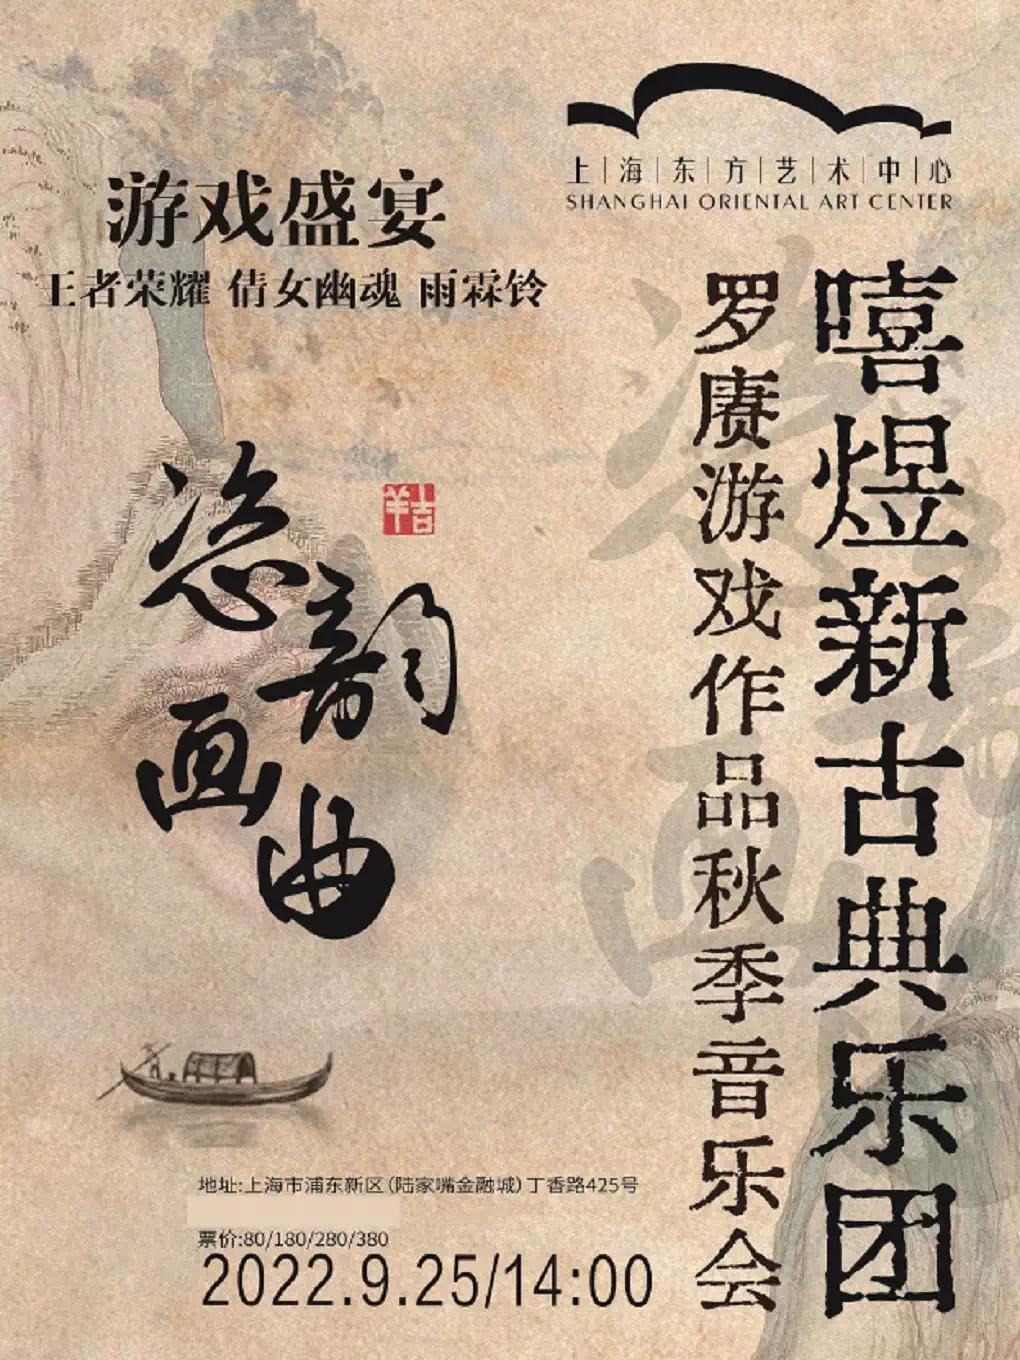 上海东方艺术中心
SHANGHAI ORIENTAL ART CENTER
游戏盛宴
王者荣耀 倩女幽魂 雨霖铃
嘻煜新古典乐团
罗赓游戏作品秋季音乐会
恣韵画曲
吉羊
地址:上海市浦东新区(陆家嘴金融城)丁香路425号
票价:80/180/280/380
2022.9.25/14:00